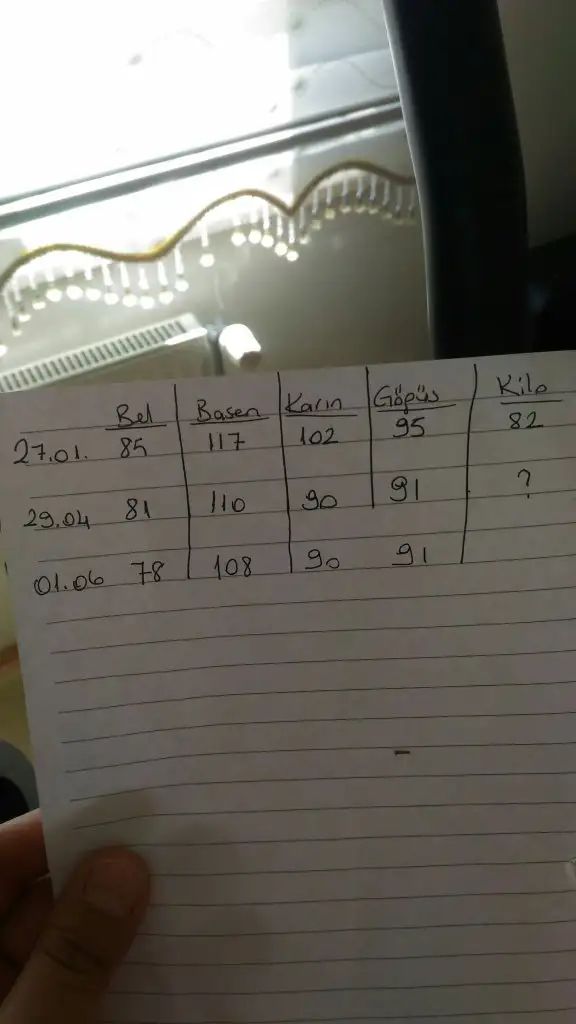 Bel Basen Karın Göğüs Kilo
27.01. 85 117 102 95 82
29.04 81 110 90 91 ?
01.06 78 108 90 91